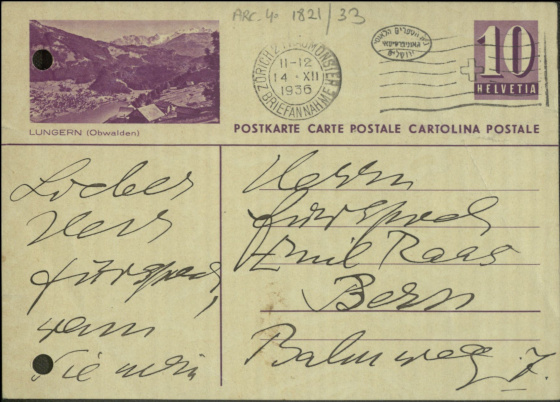 ARC. 4° 1821/33
ZÜRICH 2 FRAUMÜNSTER
11-12
14.XII
1936
BRIEFANNAHME
בית הספרים הלאומי
והאוניברסיטאי
ירושלים
10
HELVETIA
LUNGERN (Obwalden)
POSTKARTE CARTE POSTALE CARTOLINA POSTALE
Lieber
Herr
Fürsprech,
wenn
Sie mir
Herrn
Fürsprech
Emil Raas
Bern
Balmweg 7.